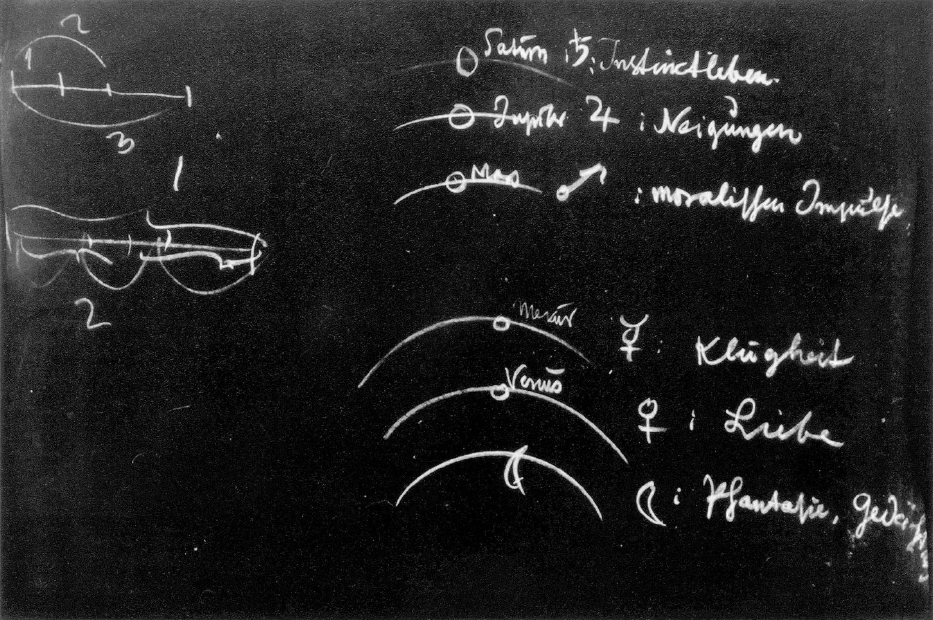 2
1
3
1
2
Saturn ♄: Instinctleben.
Jupiter ♃ : Neigungen
Mars ♂ : moralischen Impulse
Merkur ☿ : Klugheit
Venus ♀ : Liebe
☾ : Phantasie,